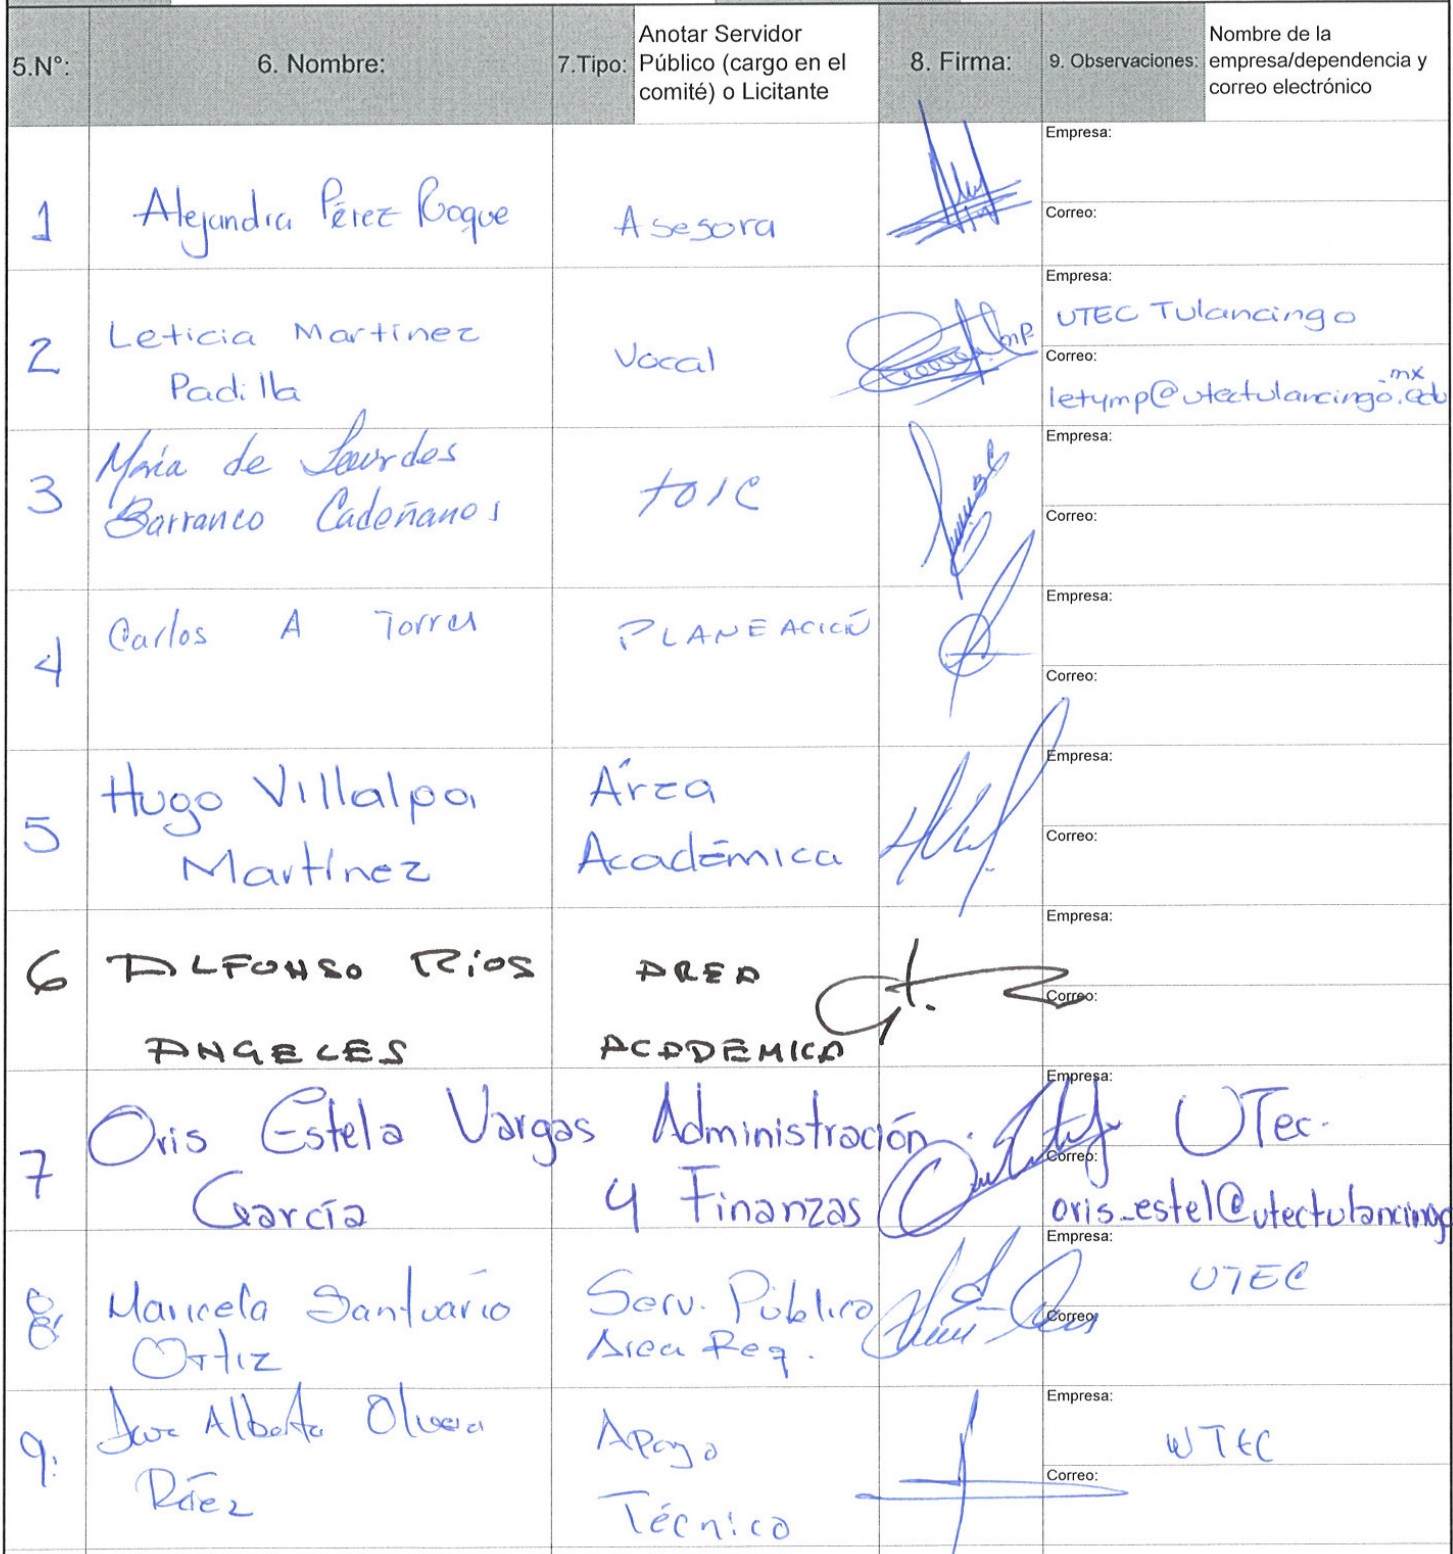 5.N°:
6. Nombre:
7.Tipo:
Anotar Servidor
Público (cargo en el
comité) o Licitante
8. Firma:
9. Observaciones:
Nombre de la
empresa/dependencia y
correo electrónico
1
Alejandra Pérez Roque
Asesora
Empresa:
Correo:
2
Leticia Martínez
Padilla
Vocal
Empresa:
UTEC Tulancingo
Correo:
letymp@utectulancingo.edu
.mx
3
María de Lourdes
Barranco Cadeñanos
TOIC
Empresa:
Correo:
4
Carlos A Torres
PLANEACIÓN
Empresa:
Correo:
5
Hugo Villalpa
Martínez
Área
Académica
Empresa:
Correo:
6
ALFONSO Ríos
ANGELES
AREA
ACADÉMICA
Empresa:
Correo:
7
Oris Estela Vargas
García
Administración
y Finanzas
Empresa:
UTec.
Correo:
oris_estel@utectulancingo
8
Maricela Santuario
Ortiz
Serv. Público
Area Req.
Empresa:
UTEC
Correo:
9.
Alberto Olvera
Empresa:
UTEC
Apoyo
Técnico
Correo: